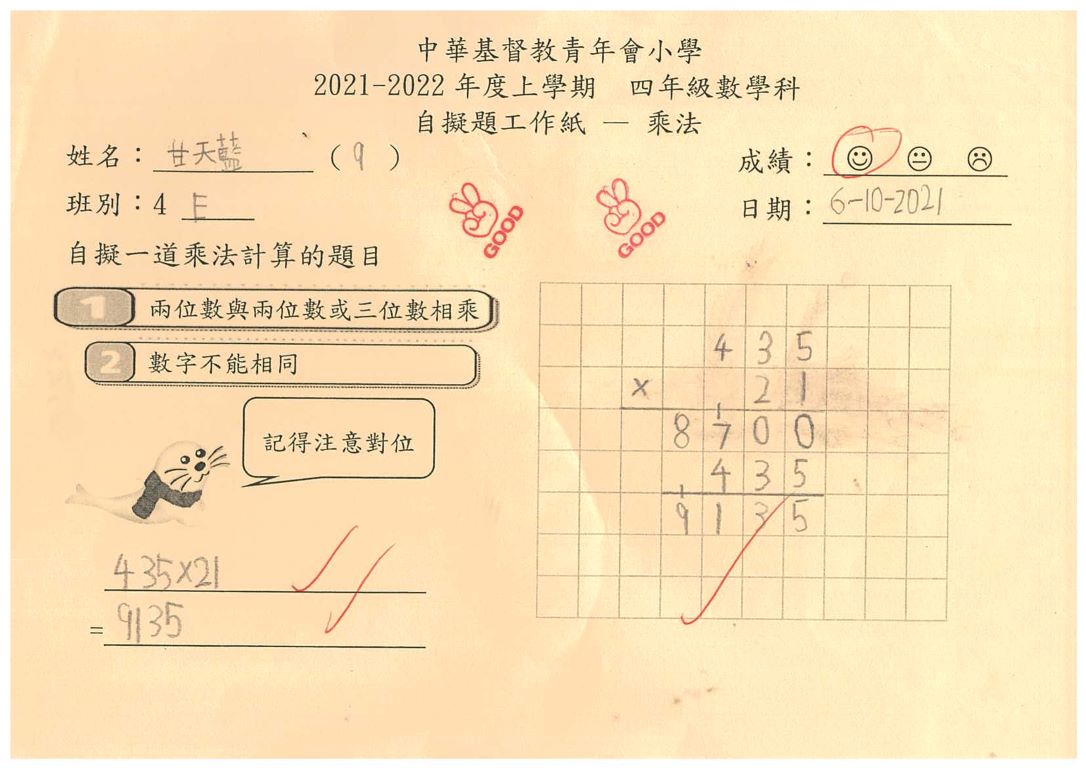 中華基督教青年會小學
2021-2022 年度上學期 四年級數學科
自擬題工作紙 — 乘法
姓名：甘天藍 (9) 成績：
班別：4 E 日期：6-10-2021
GOOD GOOD
自擬一道乘法計算的題目
1 兩位數與兩位數或三位數相乘
2 數字不能相同
記得注意對位
435
× 21
8700
435
9135
435×21
= 9135